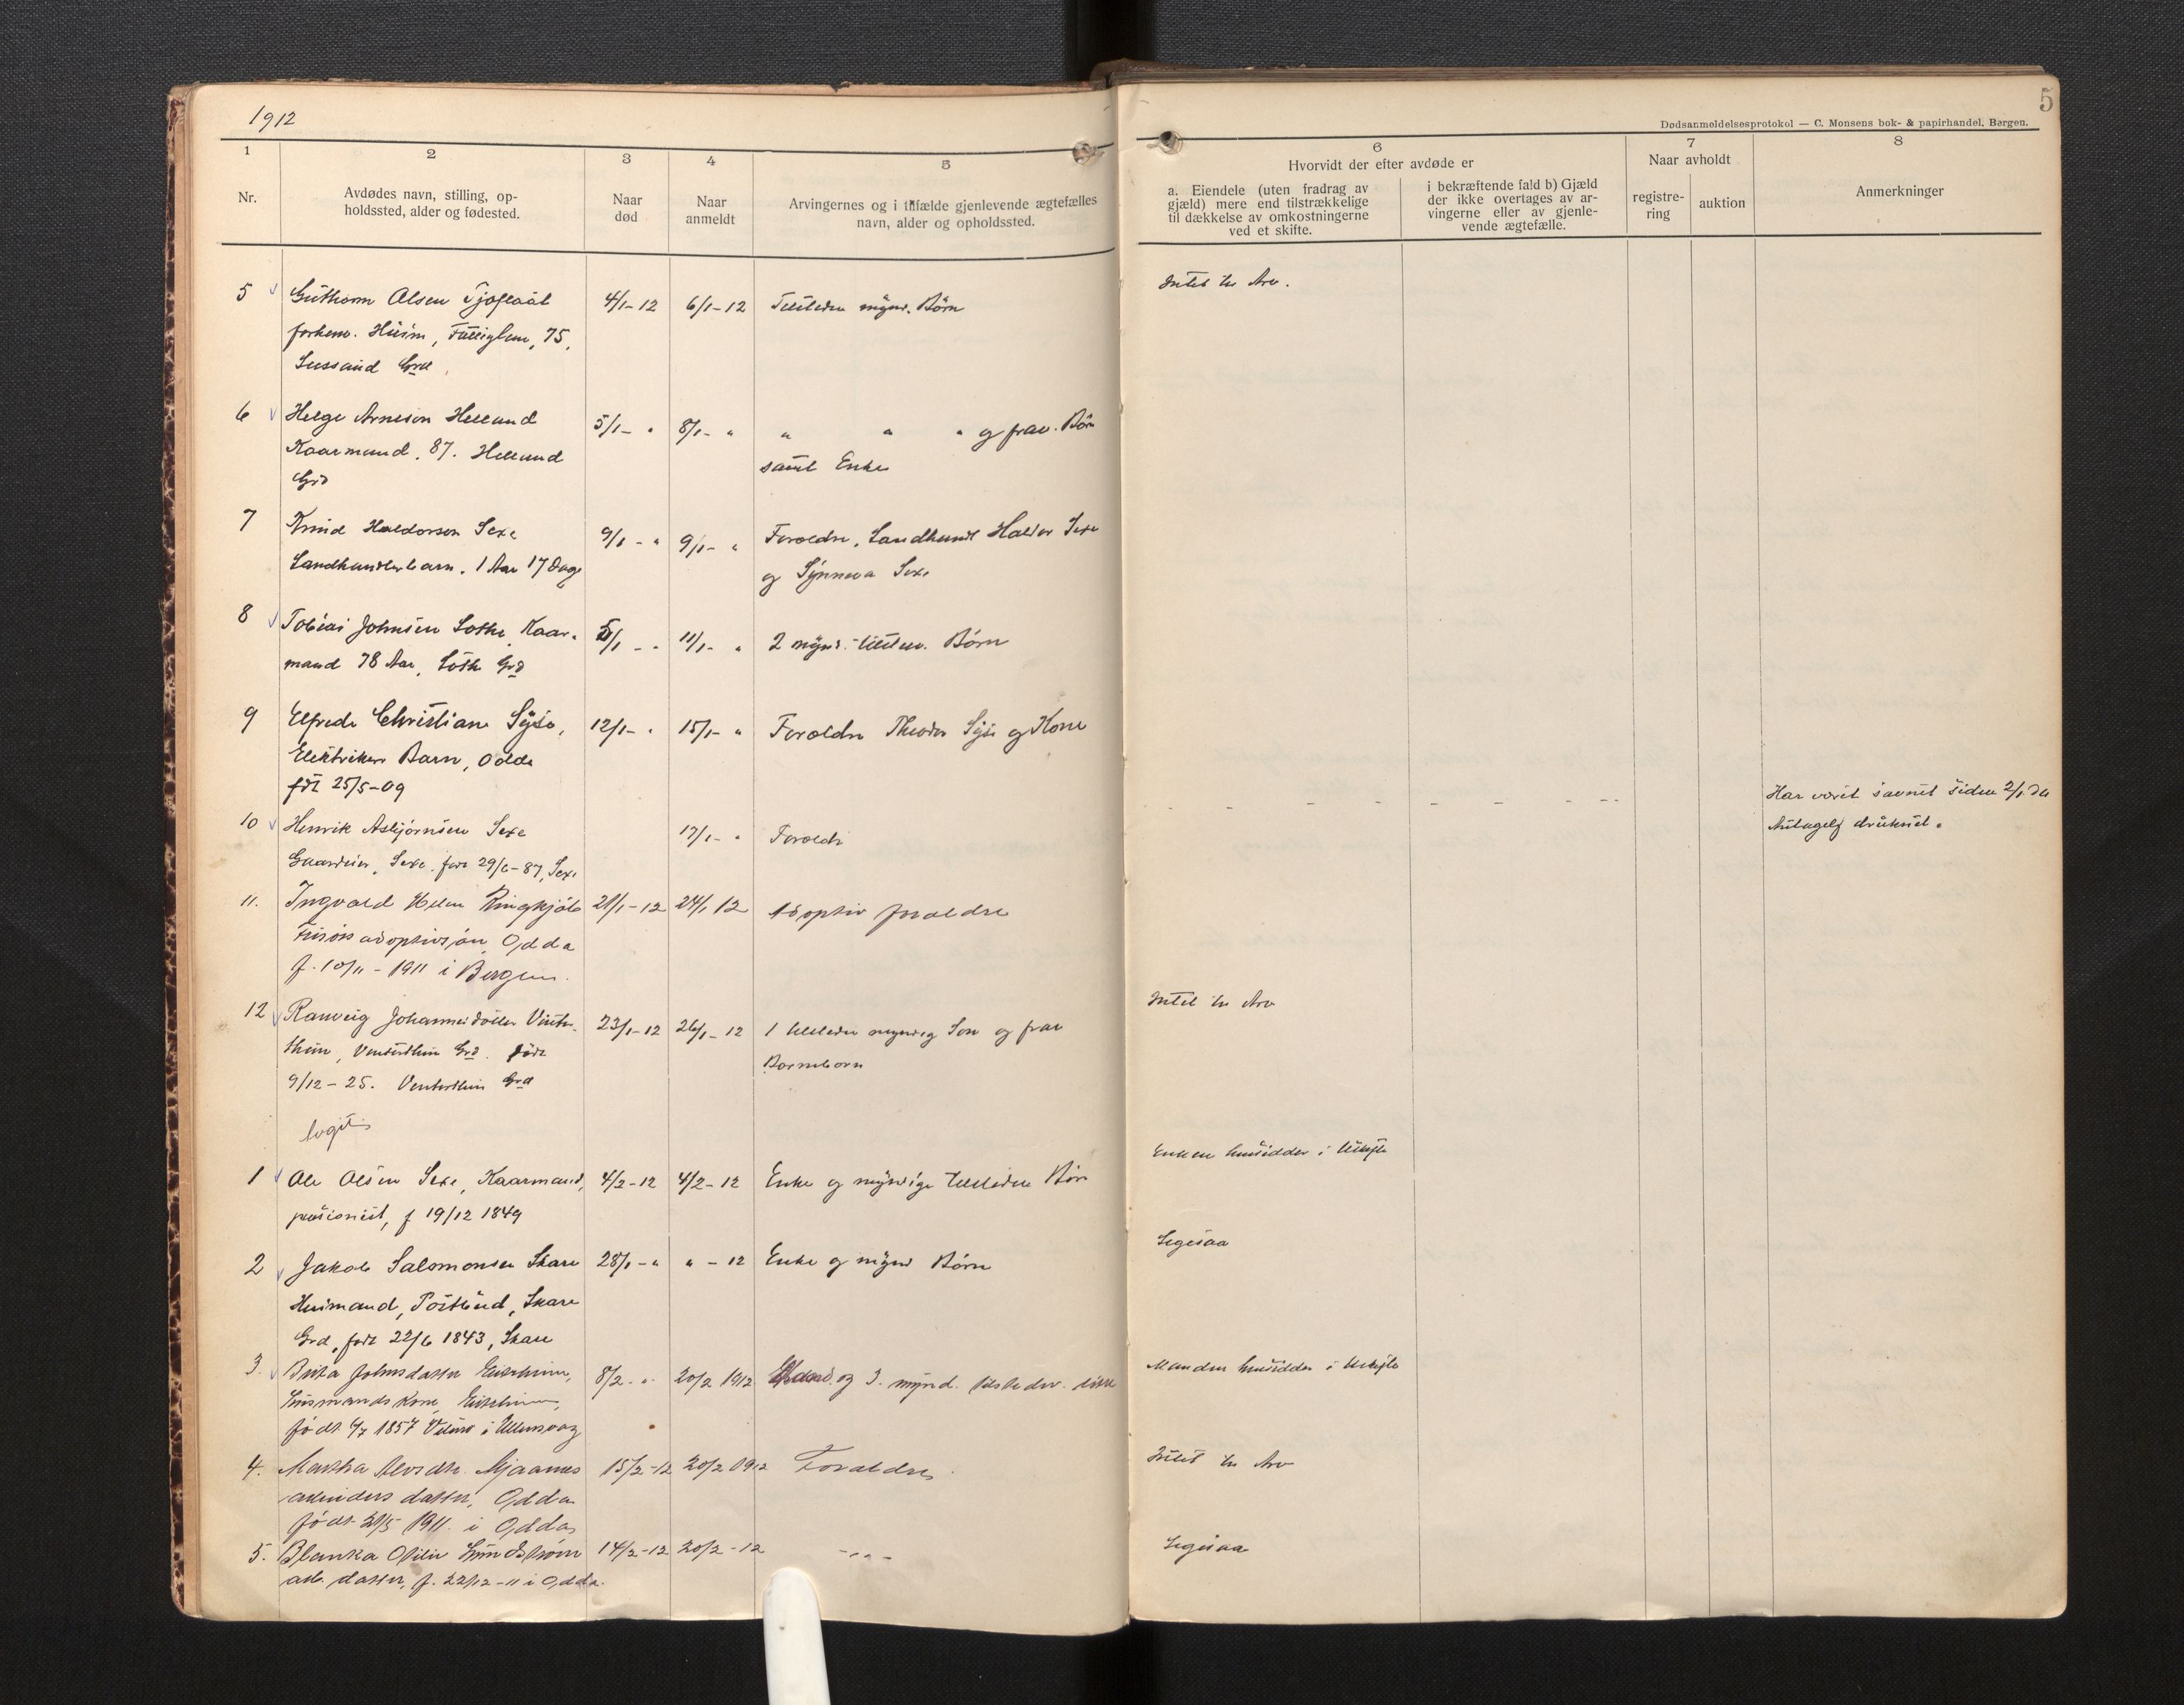 1912
5
Dødsanmeldelsesprotokol — C. Monsens bok- & papirhandel, Bergen.
1
2
3
4
5
6
7
8
Nr.
Avdødes navn, stilling, op-
holdssted, alder og fødested.
Naar
død
Naar
anmeldt
Arvingernes og i tilfælde gjenlevende ægtefælles
navn, alder og opholdssted.
Hvorvidt der efter avdøde er
a. Eiendele (uten fradrag av
gjæld) mere end tilstrækkelige
til dækkelse av omkostningerne
ved et skifte.
i bekræftende fald b) Gjæld
der ikke overtages av ar-
vingerne eller av gjenle-
vende ægtefælle.
Naar avholdt
registre-
ring
auktion
Anmerkninger
5
Guthorm Olsen Tjoflaat
forhenv. Husm, 75,
Grd
4/1-12
6/1-12
Tilstedev mynd. Børn
Intet to Arv.
6
Helge Arneson Helland
Kaarmand, 87. Helland
Grd
5/1- "
8/1- "
" " " og frav. Børn
samt Enke
7
Knud Haldorsen Sexe
Landhandlerbarn. 1 Aar 17 Dage
9/1 - "
9/1- "
Forældre, Landhandl Haldor Sexe
og Synneva Sexe
8
Tobias Johnsen Lothe, Kaar-
mand 78 Aar, Lothe Grd
5/1 - -
11/1- "
2 mynd. tilstedev. Børn
9
Elfrede Christiane Syse,
Elektrikers Barn, Odda
fdt 25/5-09
12/1- "
15/1- "
Forældre Theodor Syse og Kone
10
Henrik Asbjørnsen Sexe
Gaardeier, Sexe. født 29/6-87, Sexe
17/1- "
Forældre
Har været savnet siden 2/1. da
Antagelg druknet.
11.
Ingvald Helm Ringkjøb
Frisørs adoptivsøn, Odda
f. 10/11 - 1911 i Bergen.
21/1-12
24/1 12
Adoptiv forældre
12
Ranveig Johannesdotter Vinter-
thun, Grd. født
9/12-25. Grd
23/1-12
26/1- 12
1 tilstedev myndig Søn og frav
Barnebørn
Intet to Arv
1
Ole Olsen Sexe, Kaarmand,
pensionist, f 19/12 1849
4/2-12
4/2-12
Enke og myndige tilstedev Børn
Enken hensidder i Uskifte
2
Jakob Salomonsen Skare
Husmand, Postbud, Skare
Grd, født 22/6 1843, Skare
28/1-"
" - 12
Enke og mynd Børn
Ligesaa
3.
Brita Johnsdatter Eitrheim,
Husmands Kone, Eitrheim,
født 6/7 1857 i Ullensvang
8/2- "
20/2 1912
og 3. mynd. tilstedev.
Manden hensidder i Uskifte
4.
Martha Mjaanes
arbeiders datter, Odda
født 21/5 1911. i Odda
15/2-12
20/2 1912
Forældre
Intet to Arv
5.
Blanka Otilie Lundstrøm
arb. datter, f. 22/12-11 i Odda.
14/2-12
20/2-12
- " - " -
Ligesaa